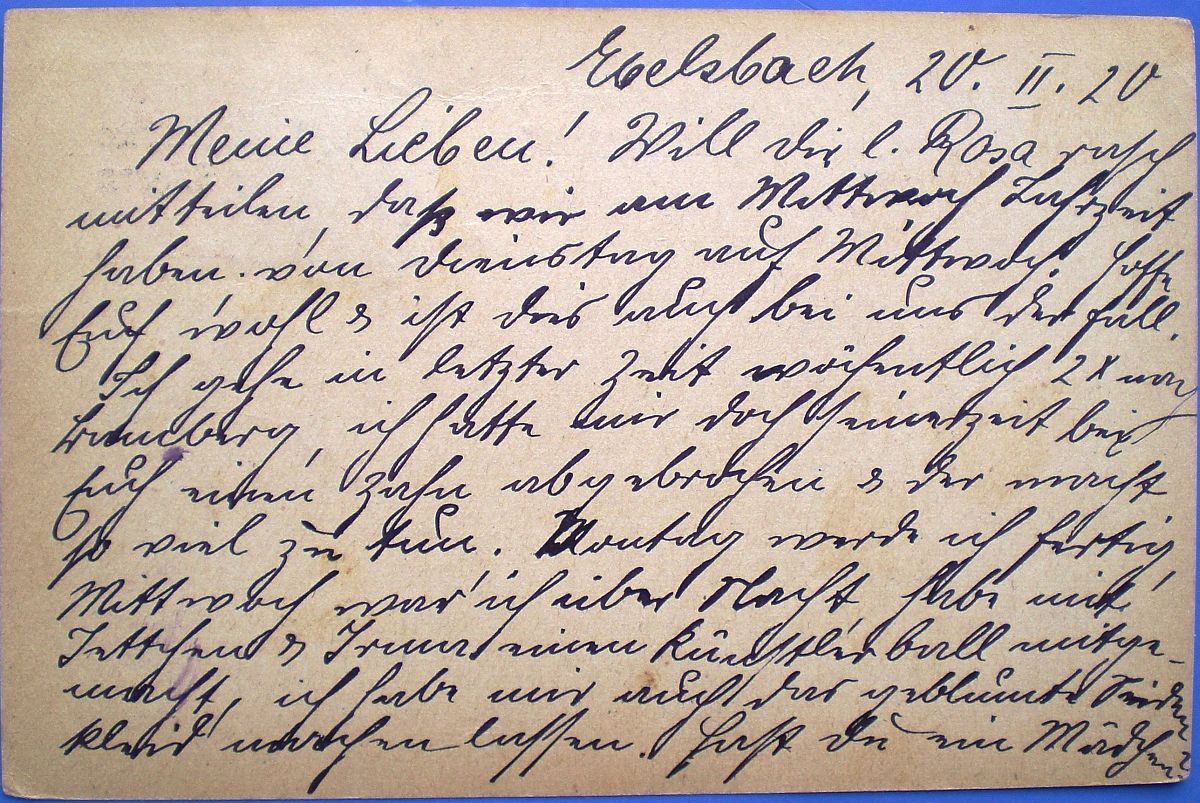 Ebelsbach, 20. II. 20
Meine Lieben! Will dir l. Rosa rasch
mitteilen, daß wir am Mittwoch Jahrzeit
haben. von Dienstag auf Mittwoch. Hoffe
Euch wohl & ist dies auch bei uns der Fall.
Ich gehe in letzter Zeit wöchentlich 2 x nach
Bamberg, ich hatte mir doch seinerzeit bei
Euch einen Zahn abgebrochen & der macht
so viel zu tun. Montag werde ich fertig,
Mittwoch war ich über Nacht, habe mit
Jettchen & Irma einen Künstlerball mitge-
macht, ich habe mir auch das geblumte Seiden
kleid machen lassen. Hast du ein Mädchen?